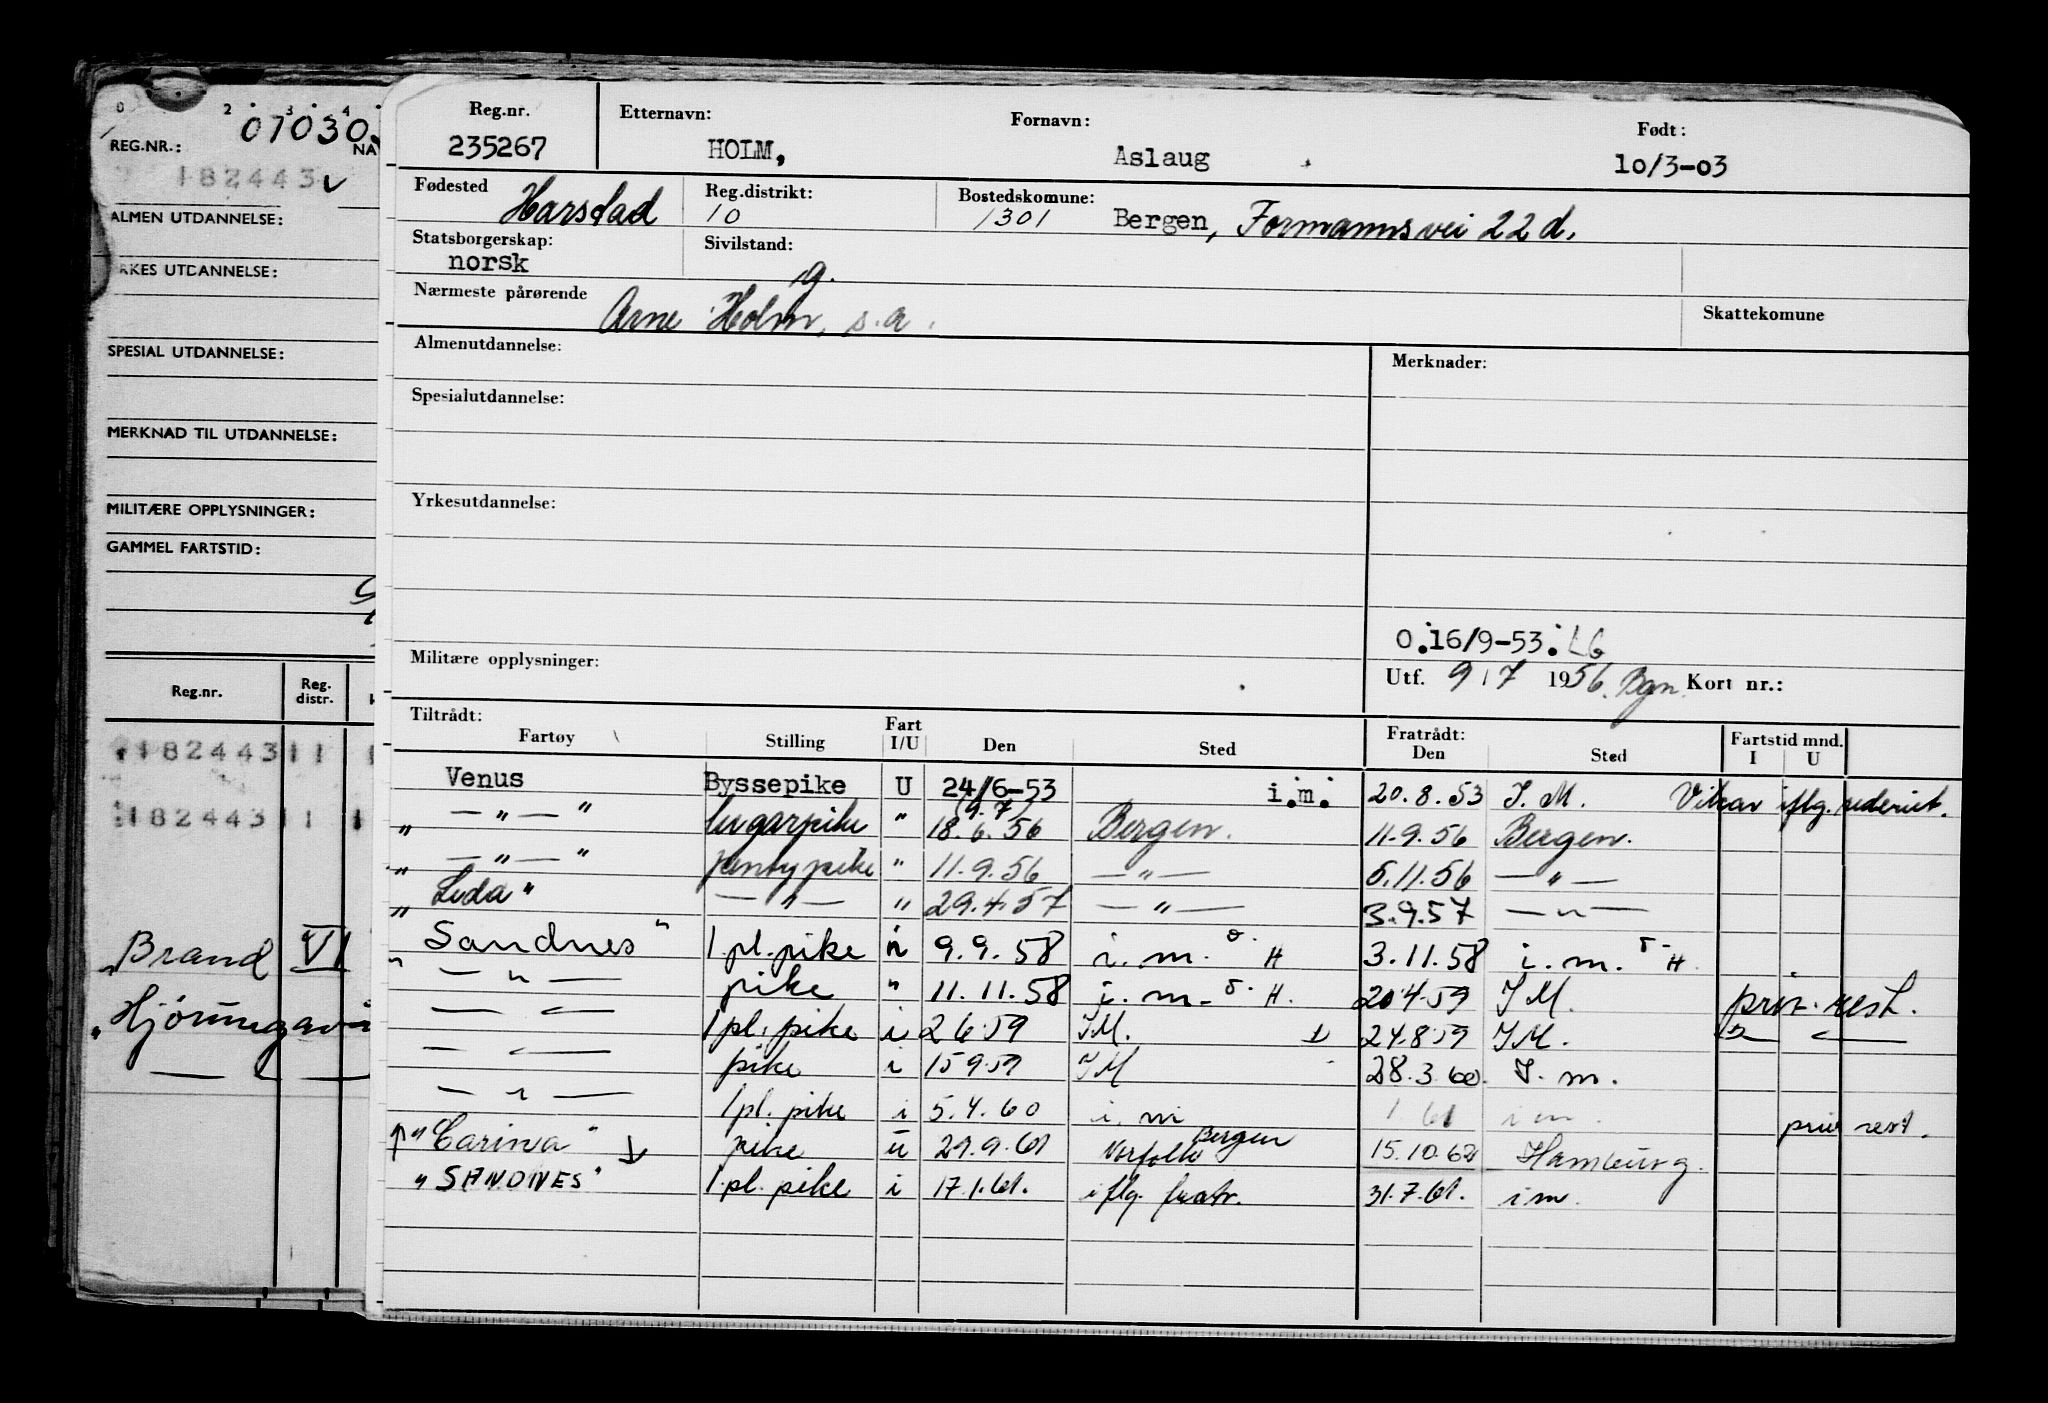 0 2 3 4
REG.NR.: 07030 NA
182443
ALMEN UTDANNELSE:
RKES UTDANNELSE:
SPESIAL UTDANNELSE:
MERKNAD TIL UTDANNELSE:
MILITÆRE OPPLYSNINGER:
GAMMEL FARTSTID:
Reg.nr. Reg. distr.
182443 11
182443 11
"Brand VI
"Hjörungav
Reg.nr. Etternavn: Fornavn: Født:
235267 HOLM, Aslaug 10/3-03
Fødested Harstad Reg.distrikt: 10 Bostedskomune: 1301 Bergen, Formannsvei 22 d.
Statsborgerskap: norsk Sivilstand: g.
Nærmeste pårørende Arne Holm, s.a. Skattekomune
Almenutdannelse: Merknader:
Spesialutdannelse:
Yrkesutdannelse:
O.16/9-53. LG
Militære opplysninger: Utf. 9/7 1956. Bgn. Kort nr.:
Tiltrådt: Fart Fratrådt: Fartstid mnd.
Fartøy Stilling I/U Den Sted Den Sted I U
Venus Byssepike U 24/6-53 i.m. 20.8.53 I.M. Vikar iflg. rederiet.
9.7
" — " — " lugarpike " 18.6.56 Bergen. 11.9.56 Bergen.
" — " — " pentrypike " 11.9.56 — " — 5.11.56 — " —
" Leda " — " — " 29.4.57 — " — 3.9.57 — " —
" Sandnes " 1.pl.pike i 9.9.58 i.m. H 3.11.58 i.m. H.
— " — pike " 11.11.58 i.m. H. 20.4.59 I M. priv. rest.
— " — 1 pl. pike i 2.6.59 I M. 24.8.59 I M. — " —
— " — pike i 15.9.59 I M 28.3.60. I. m.
— " — 1 pl. pike i 5.4.60 i. m 1 61 i m. priv rest.
"Carina" pike u 29.9.61 Norfolk Bergen 15.10.62 Hamburg.
"SANDNES" 1.pl. pike i 17.1.61. iflg. fratr. 31.7.61. i m.